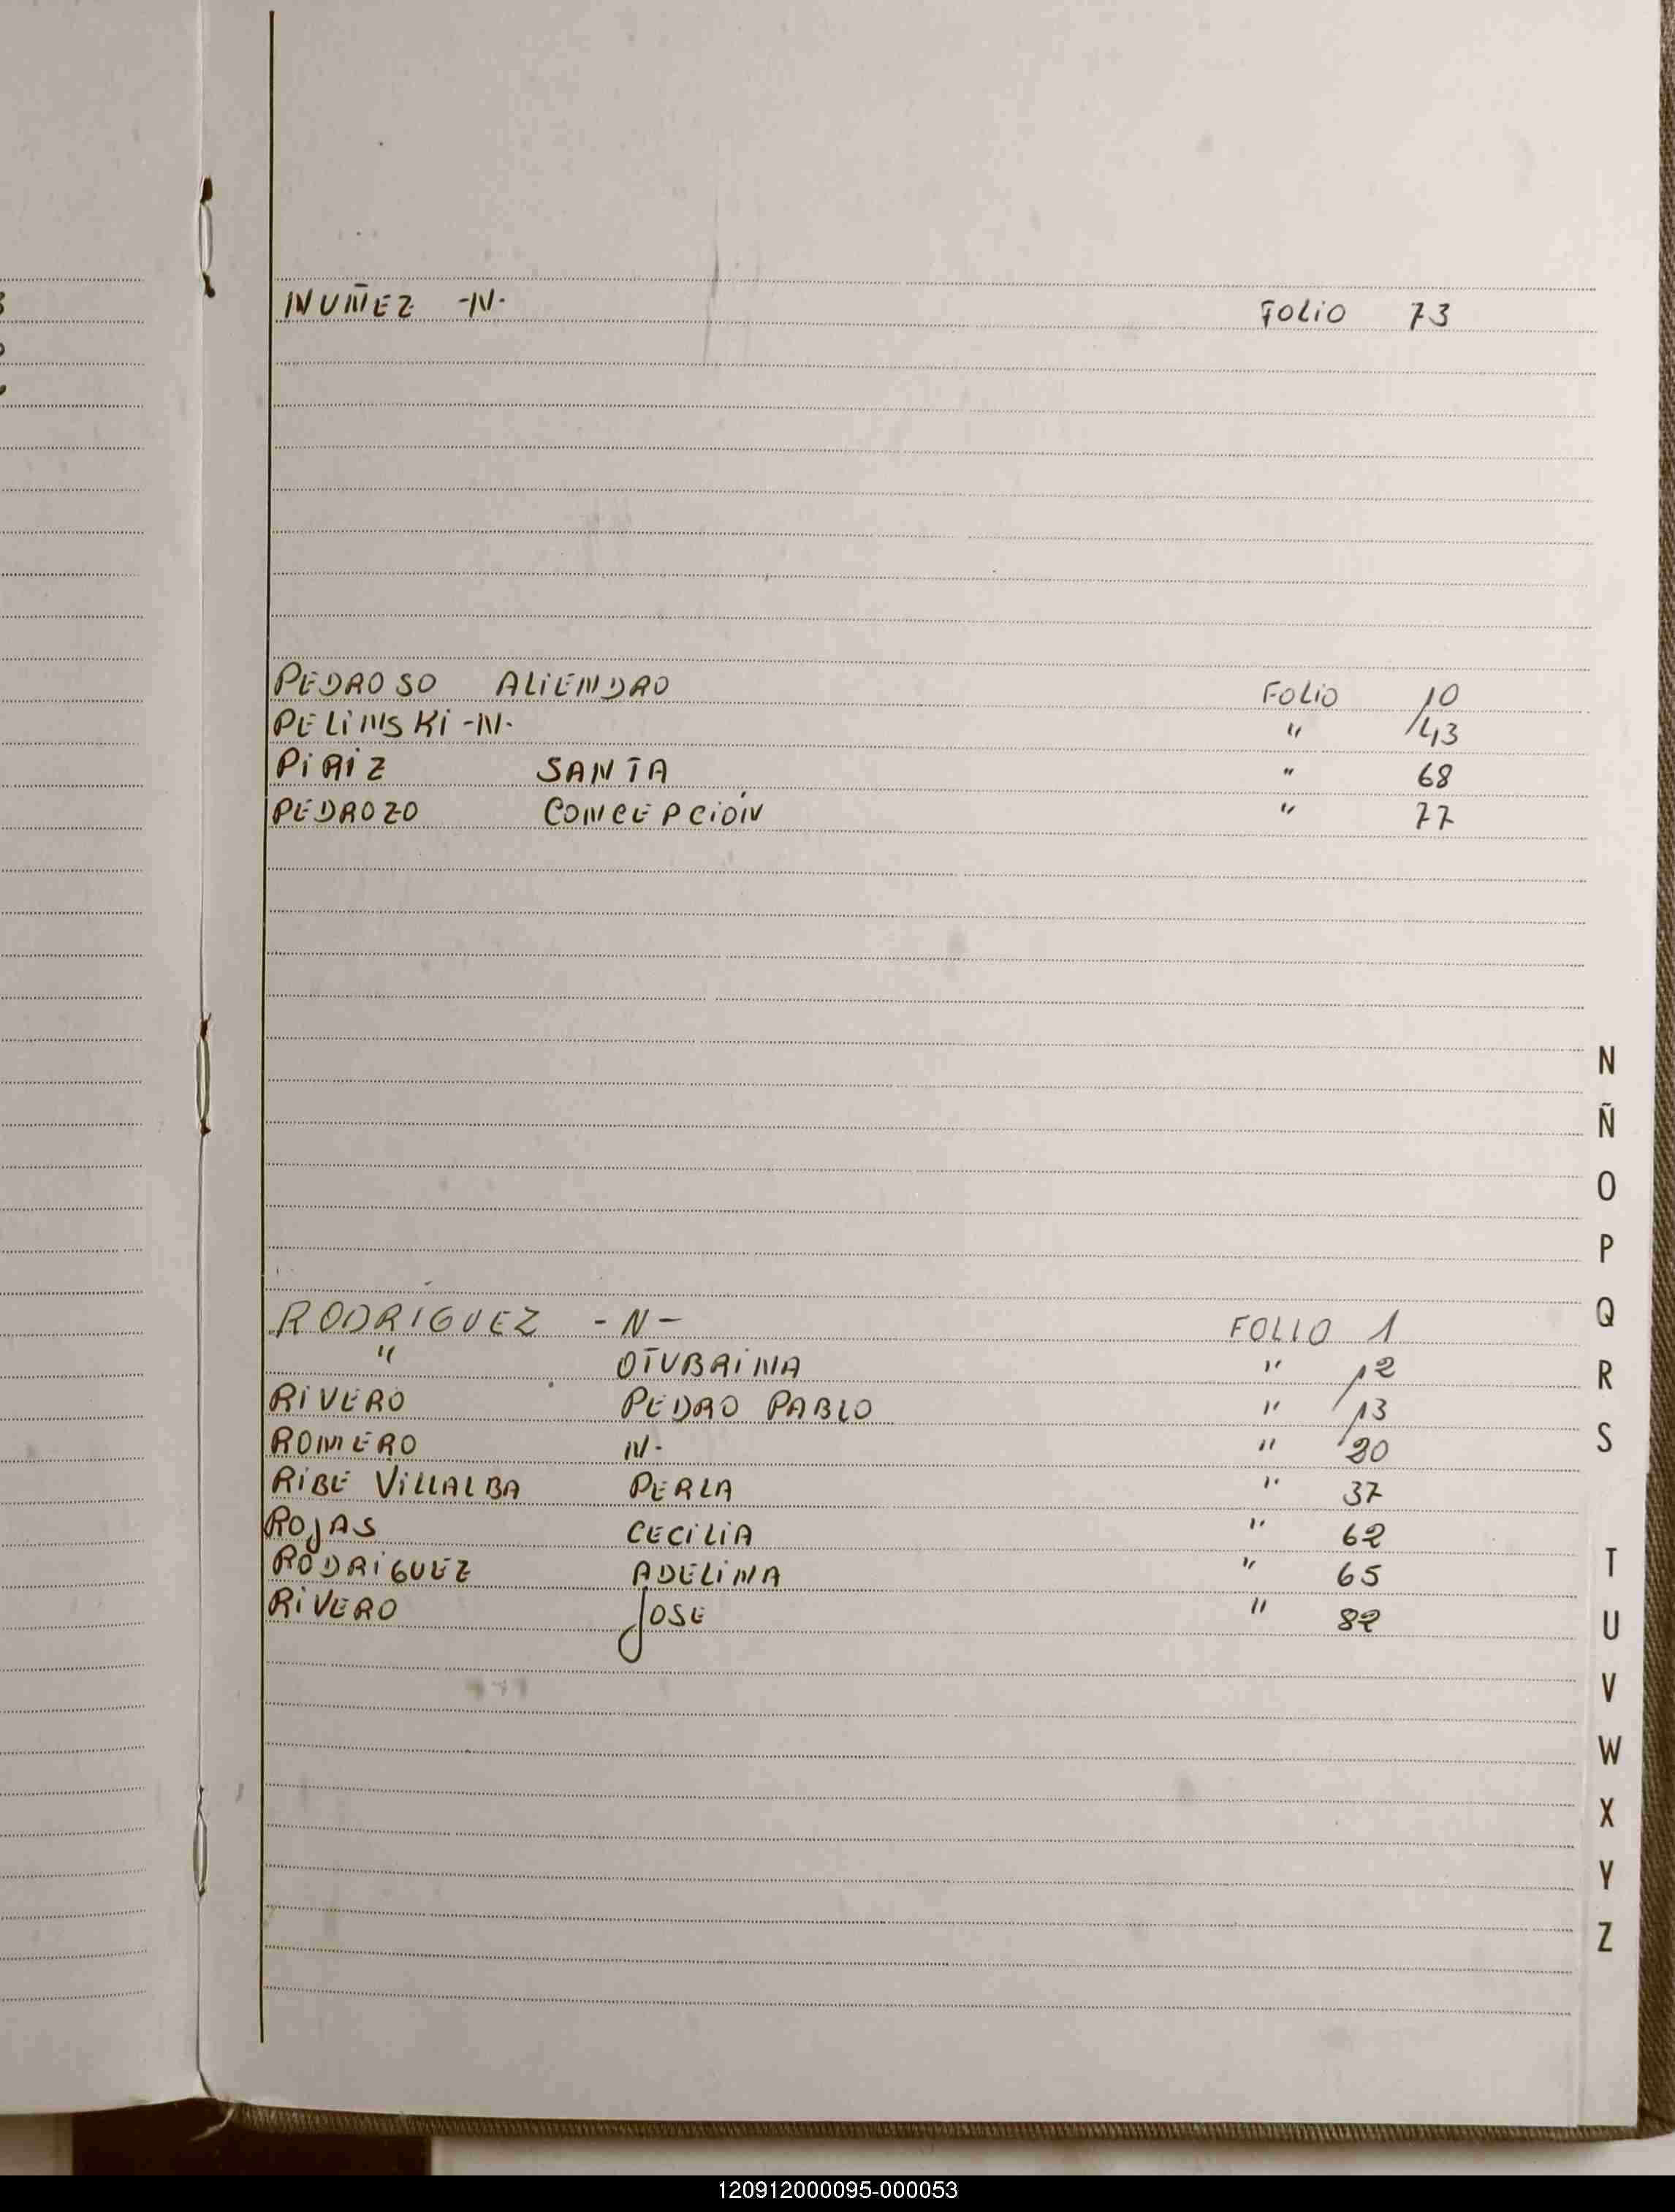 NUÑEZ -N- FOLIO 73
PEDROSO ALIENDRO FOLIO 10
PELINSKI -N- " 43
PIRIZ SANTA " 68
PEDROZO CONCEPCIÓN " 77
RODRÍGUEZ - N - FOLIO 1
" OTUBRINA " 12
RIVERO PEDRO PABLO " 13
ROMERO N- " 20
RIBE VILLALBA PERLA " 37
ROJAS CECILIA " 62
RODRIGUEZ ADELINA " 65
RIVERO JOSE " 82
N
Ñ
O
P
Q
R
S
T
U
V
W
X
Y
Z
120912000095-000053